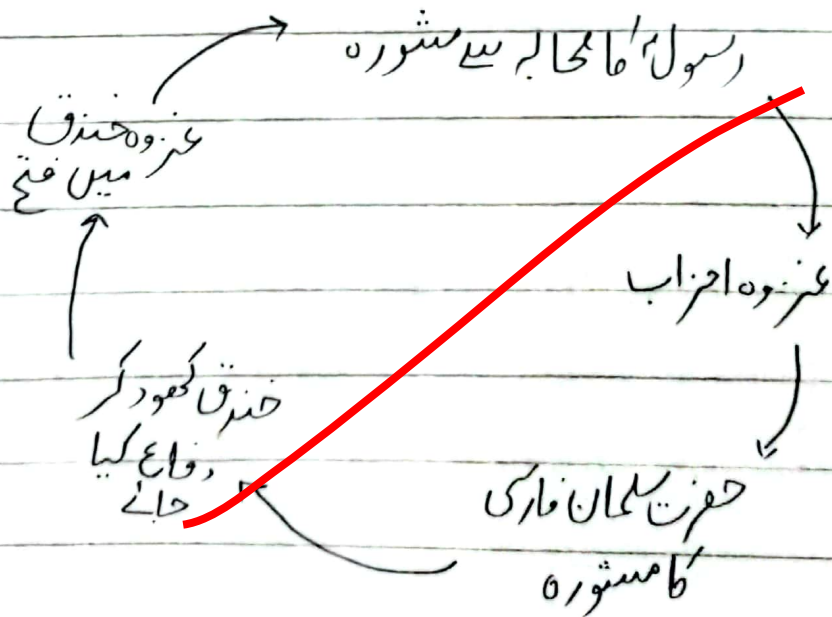 رسولؐ کا صحابہ سے مشورہ
غزوہ احزاب
حضرت سلمان فارسی
کا مشورہ
خندق کھود کر
دفاع کیا
جائے
غزوہ خندق
میں فتح